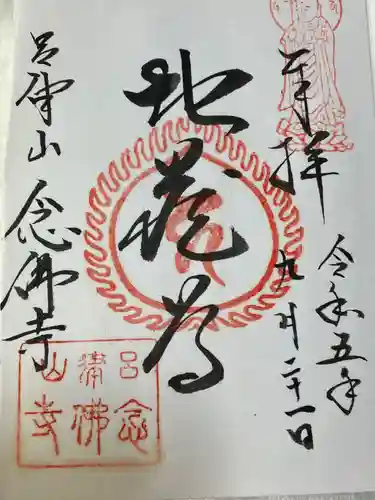 奉拝
令和五年
九月二十一日
地蔵尊
呂律山
念佛寺
呂律山
念佛寺